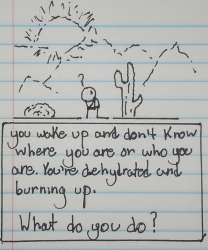 ?
you wake up and don't know
where you are or who you
are. You're dehydrated and
burning up.
What do you do?